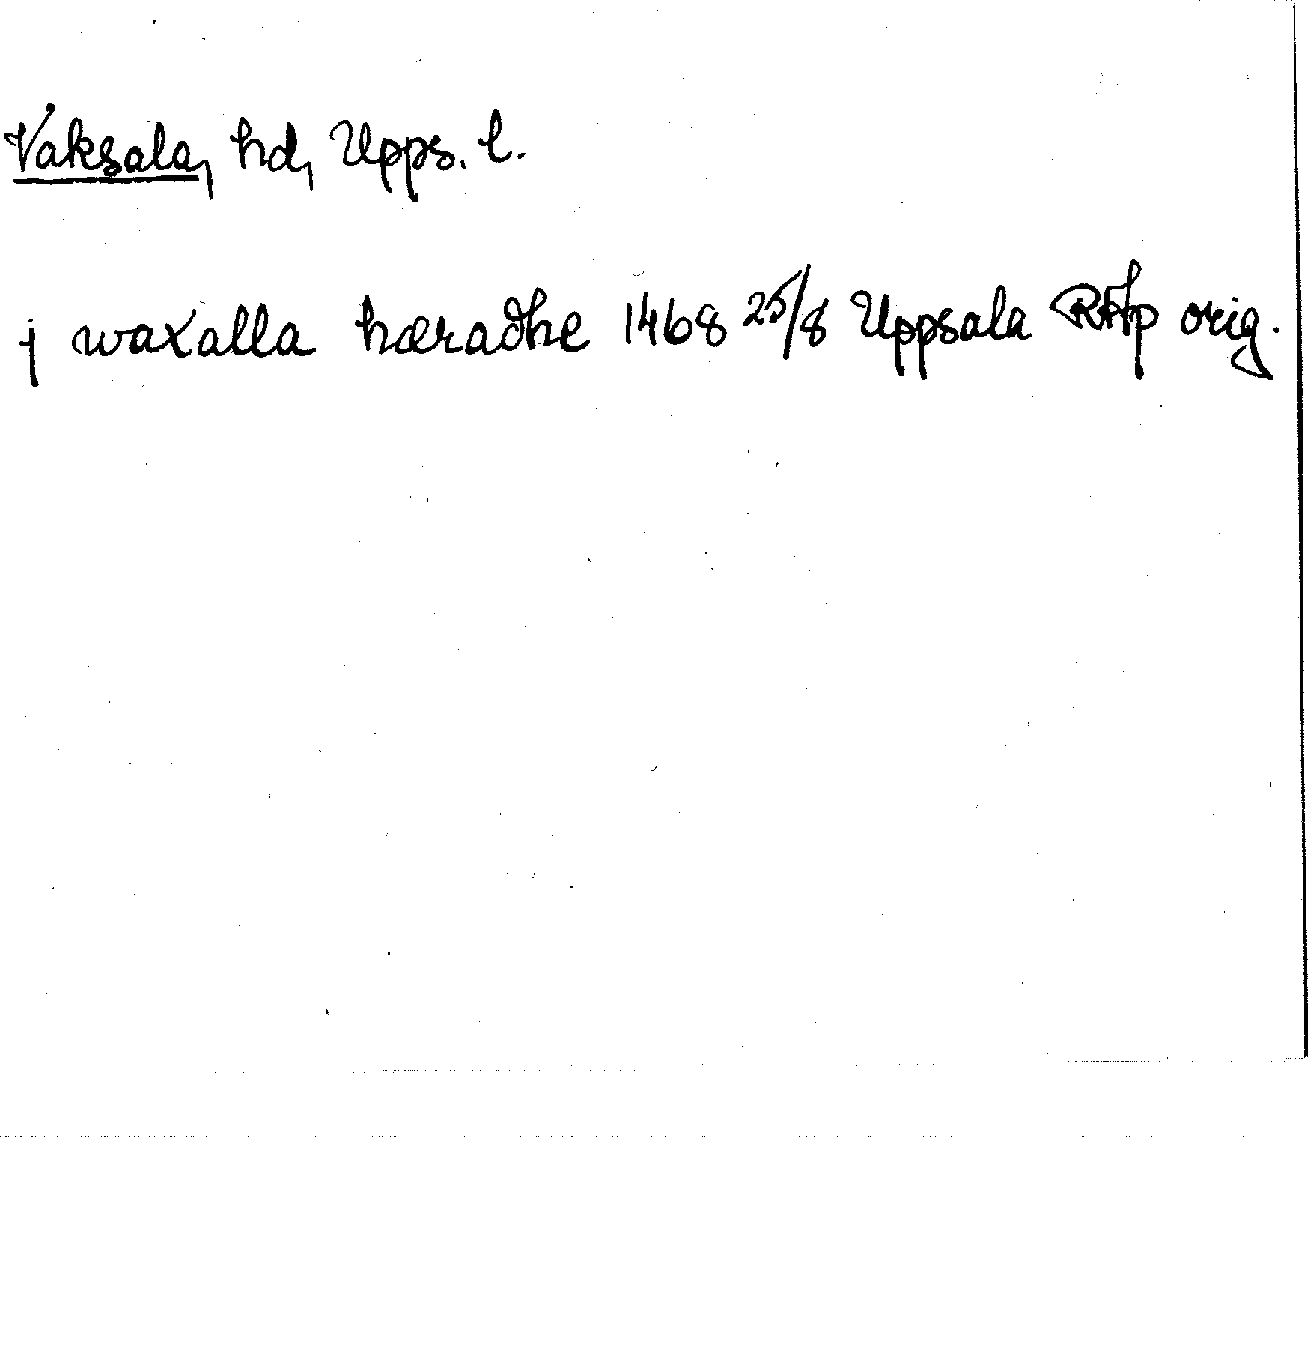 Vaksala, hd, Upps. l.
j waxalla hæradhe 1468 25/8 Uppsala RAp orig.